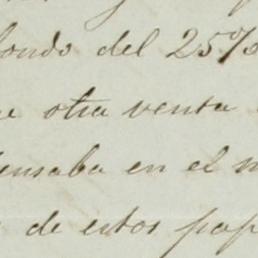 fondo del 25%
otra venta
pensaba en el
de estos pap